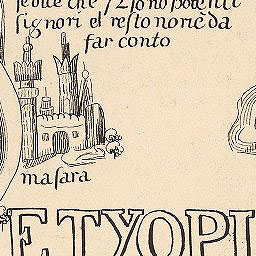 se dice che 72 sono potenti
signori el resto nō rie da
far conto
masara
ETYOPI